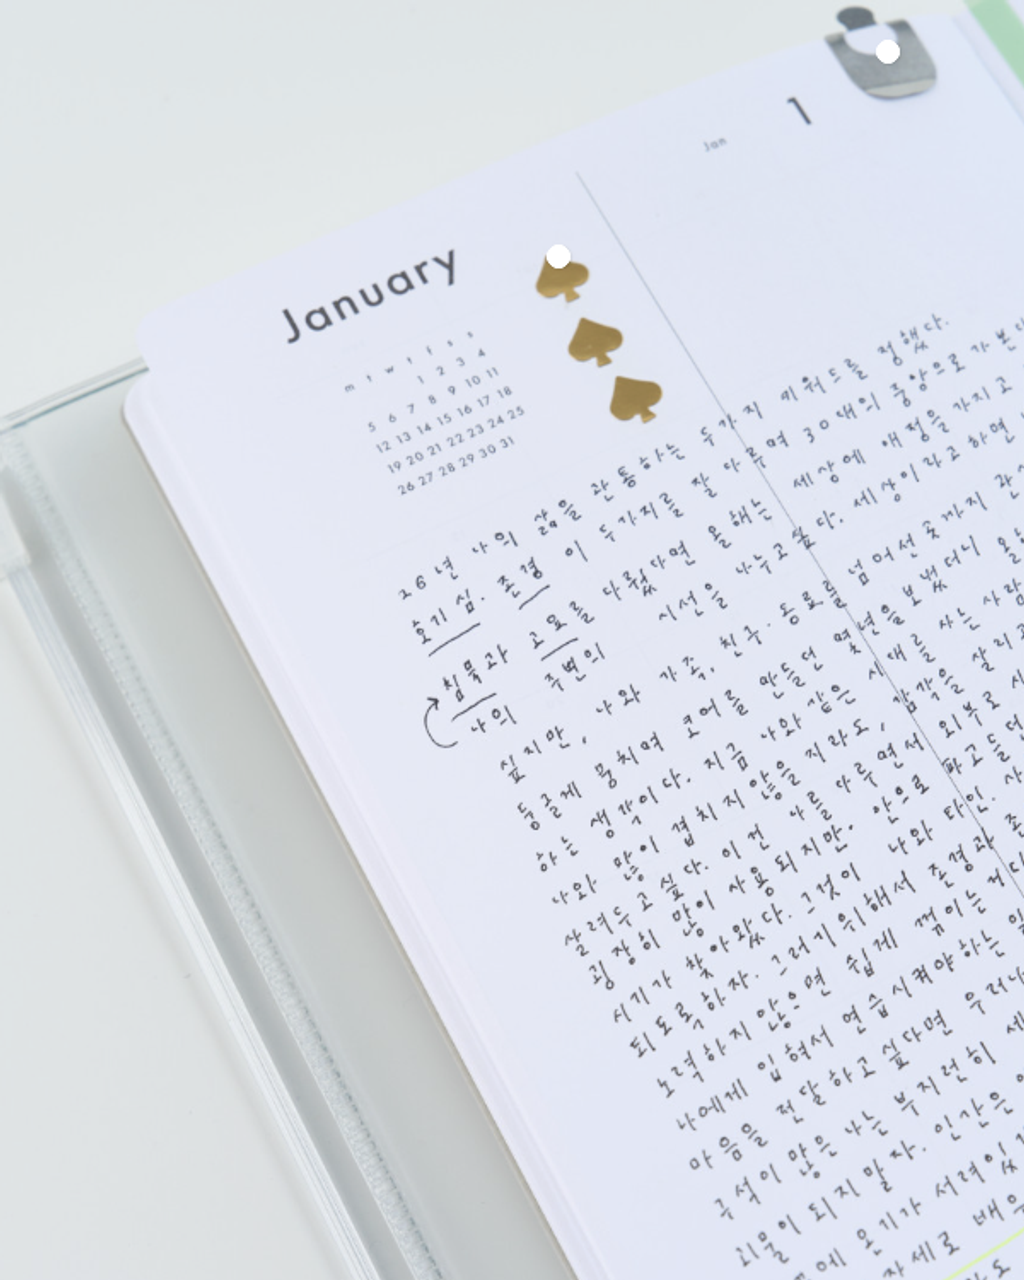 January
m t w t f s s
1 2 3 4
5 6 7 8 9 10 11
12 13 14 15 16 17 18
19 20 21 22 23 24 25
26 27 28 29 30 31
Jan 1
26년 나의 삶을 관통하는 두가지 키워드를 정했다.
호기심. 존경 이 두가지를 잘 다루며 30대의 중앙으로 가본다
침묵과 고요를 다뤘다면 올해는 세상에 애정을 가지고
나의 주변의 시선을 나누고 싶다. 세상이라고 하면
싶지만, 나와 가족, 친구. 동료를 넘어선 곳까지
둥글게 뭉치며 코어를 만들던 몇년을 보냈더니
하는 생각이다. 지금 나와 같은 시대를 사는 사람
나와 많이 겹치지 않을지라도, 감각을 살리고
살려두고 싶다. 이건 나를 다루면서 외부로
굉장히 많이 사용되지만. 안으로 파고들던
시기가 찾아왔다. 그것이 나와 타인.
되도록 하자. 그러기 위해서 존경과
노력하지 않으면 쉽게 꺾이는
나에게 입혀서 연습시켜야하는
마음을 전달하고 싶다면
구석이 많은 나는 부지런히
괴물이 되지 말자. 인간은
온기가 서려있
자세로